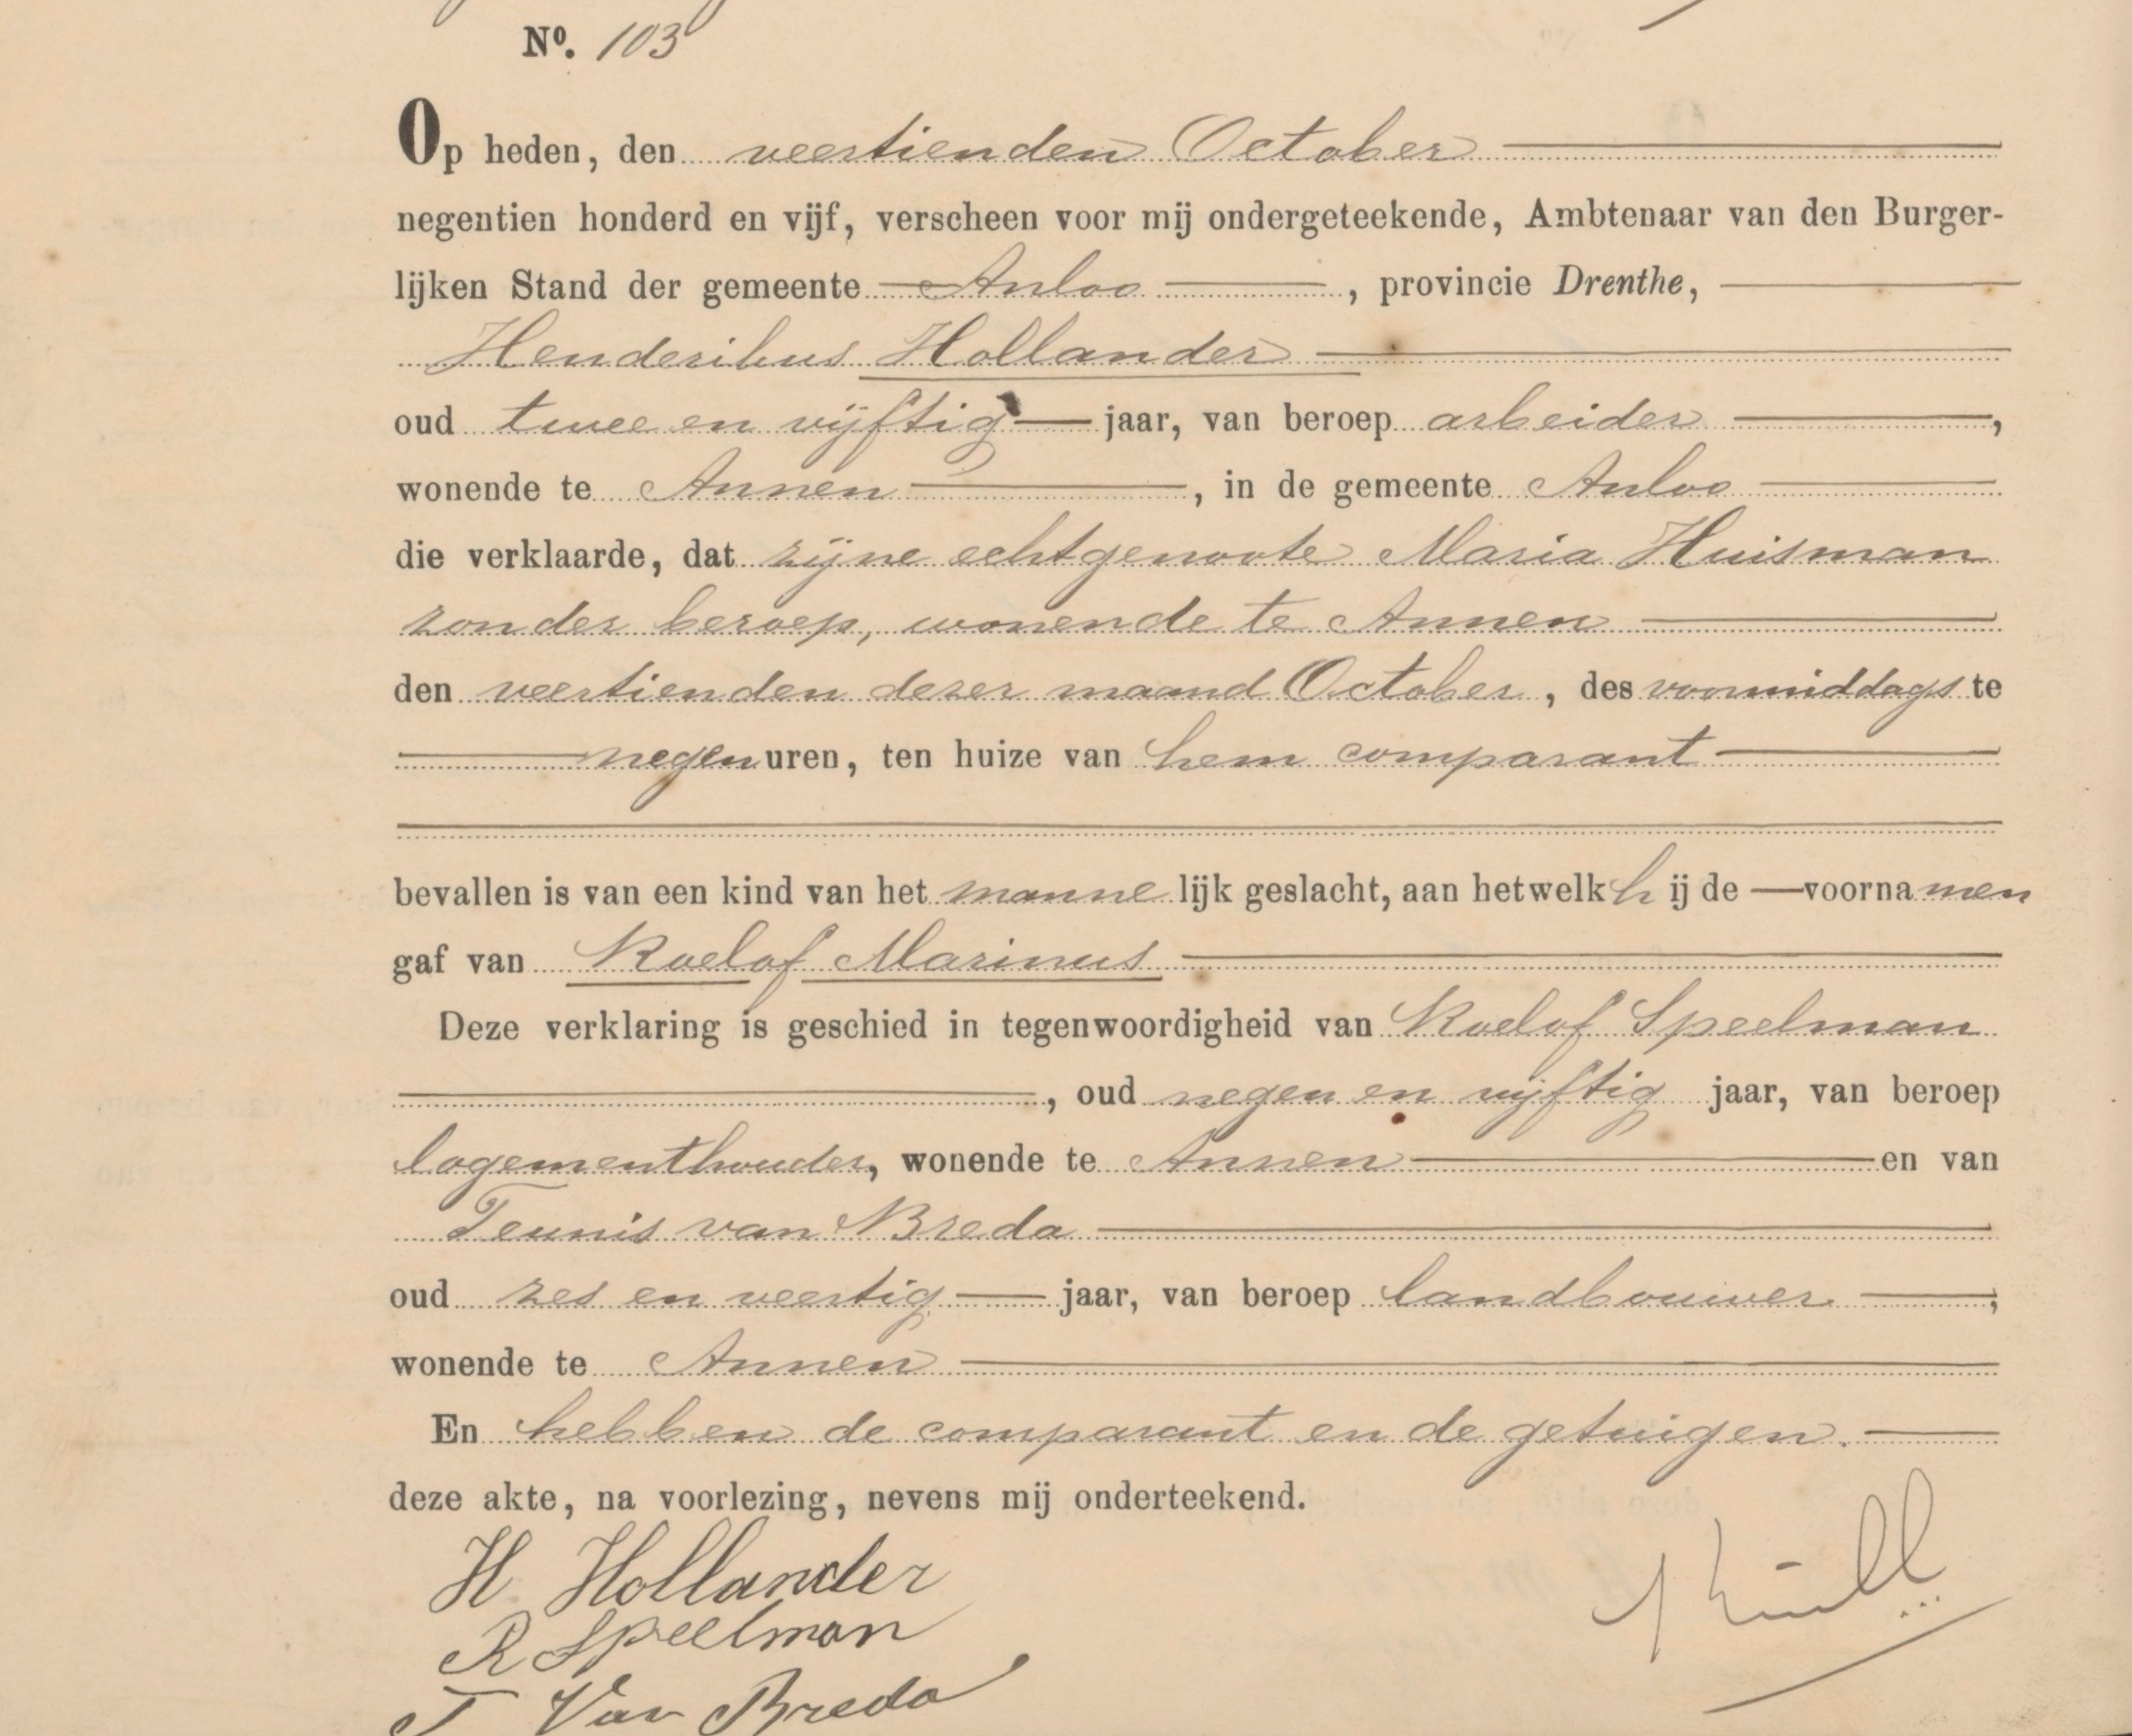 Nº. 103
Op heden, den veertienden October
negentien honderd en vijf, verscheen voor mij ondergeteekende, Ambtenaar van den Burger-
lijken Stand der gemeente Anloo, provincie Drenthe,
Henderikus Hollander
oud twee en vijftig jaar, van beroep arbeider,
wonende te Annen, in de gemeente Anloo
die verklaarde, dat zijne echtgenoote Maria Huisman
zonder beroep, wonende te Annen
den veertienden dezer maand October, des voormiddags te
negen uren, ten huize van hem comparant
bevallen is van een kind van het mannelijk geslacht, aan hetwelk hij de voornamen
gaf van Roelof Marinus
Deze verklaring is geschied in tegenwoordigheid van Roelof Speelman
, oud negen en vijftig jaar, van beroep
logementhouder, wonende te Annen en van
Teunis van Breda
oud zes en veertig jaar, van beroep landbouwer,
wonende te Annen
En hebben de comparant en de getuigen.
deze akte, na voorlezing, nevens mij onderteekend.
H. Hollander
R Speelman
T Van Breda